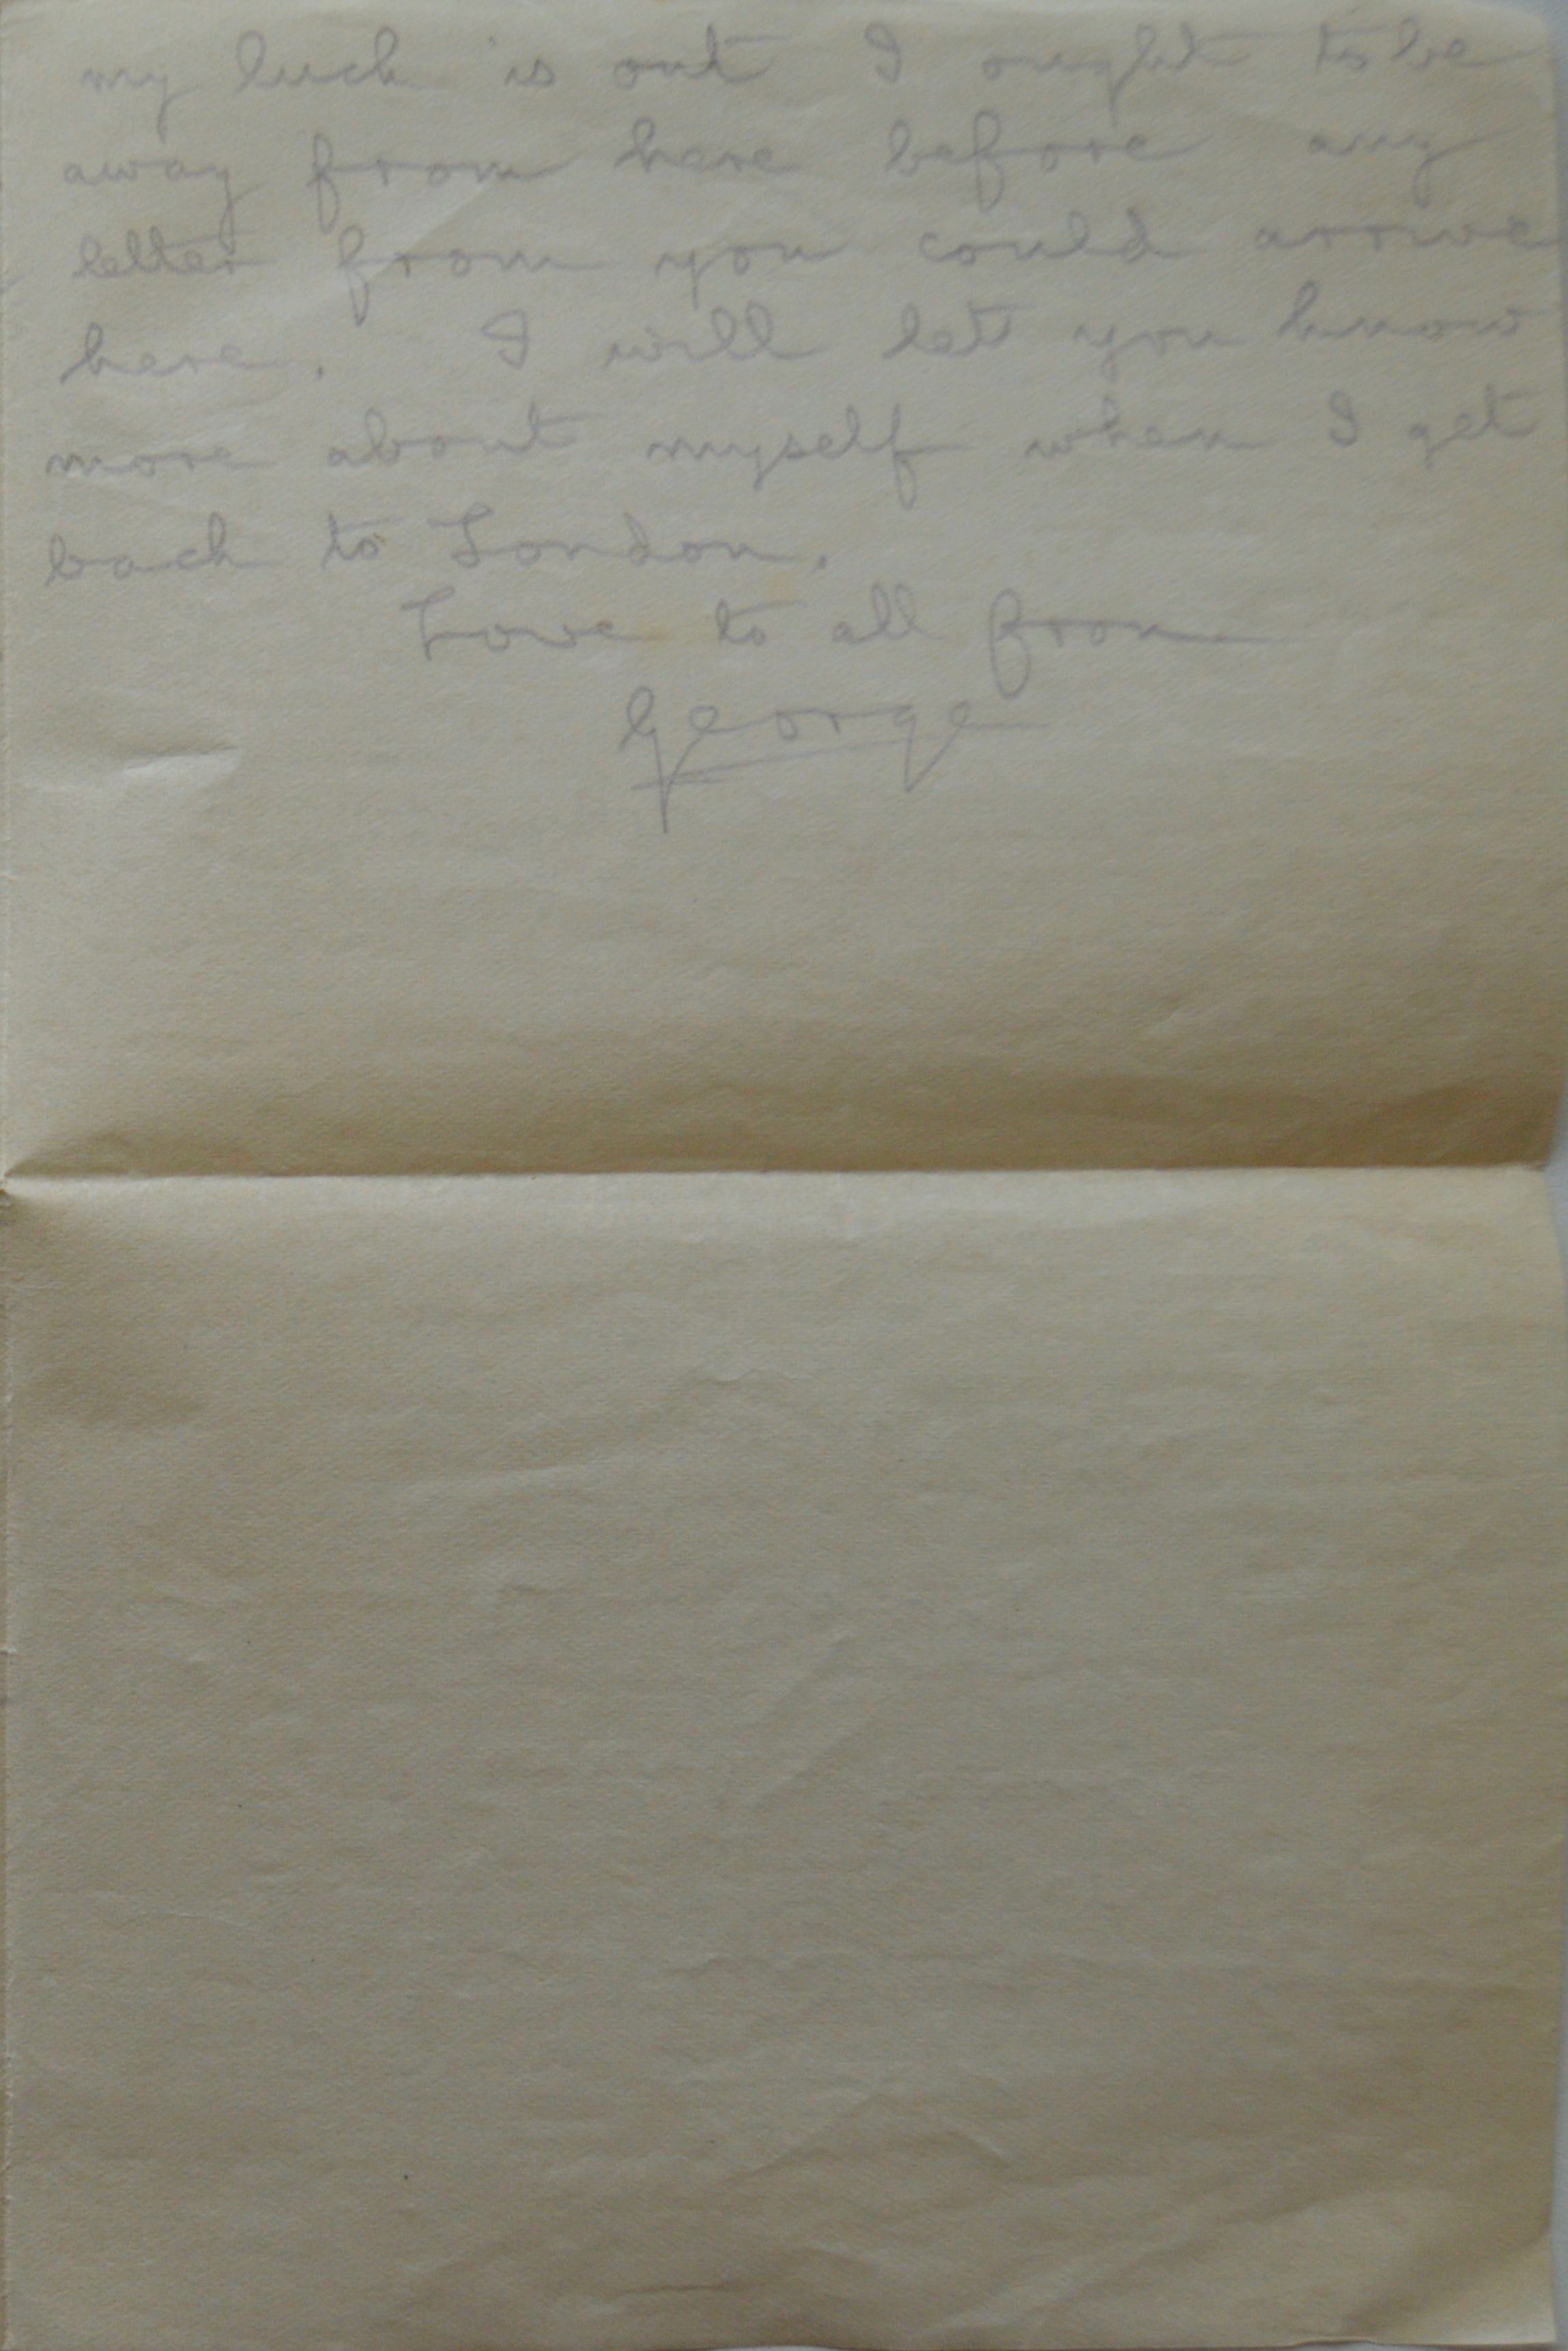 my luck is out I ought to be
away from here before any
letter from you could arrive
here. I will let you know
more about myself when I get
back to London.
Love to all from
George